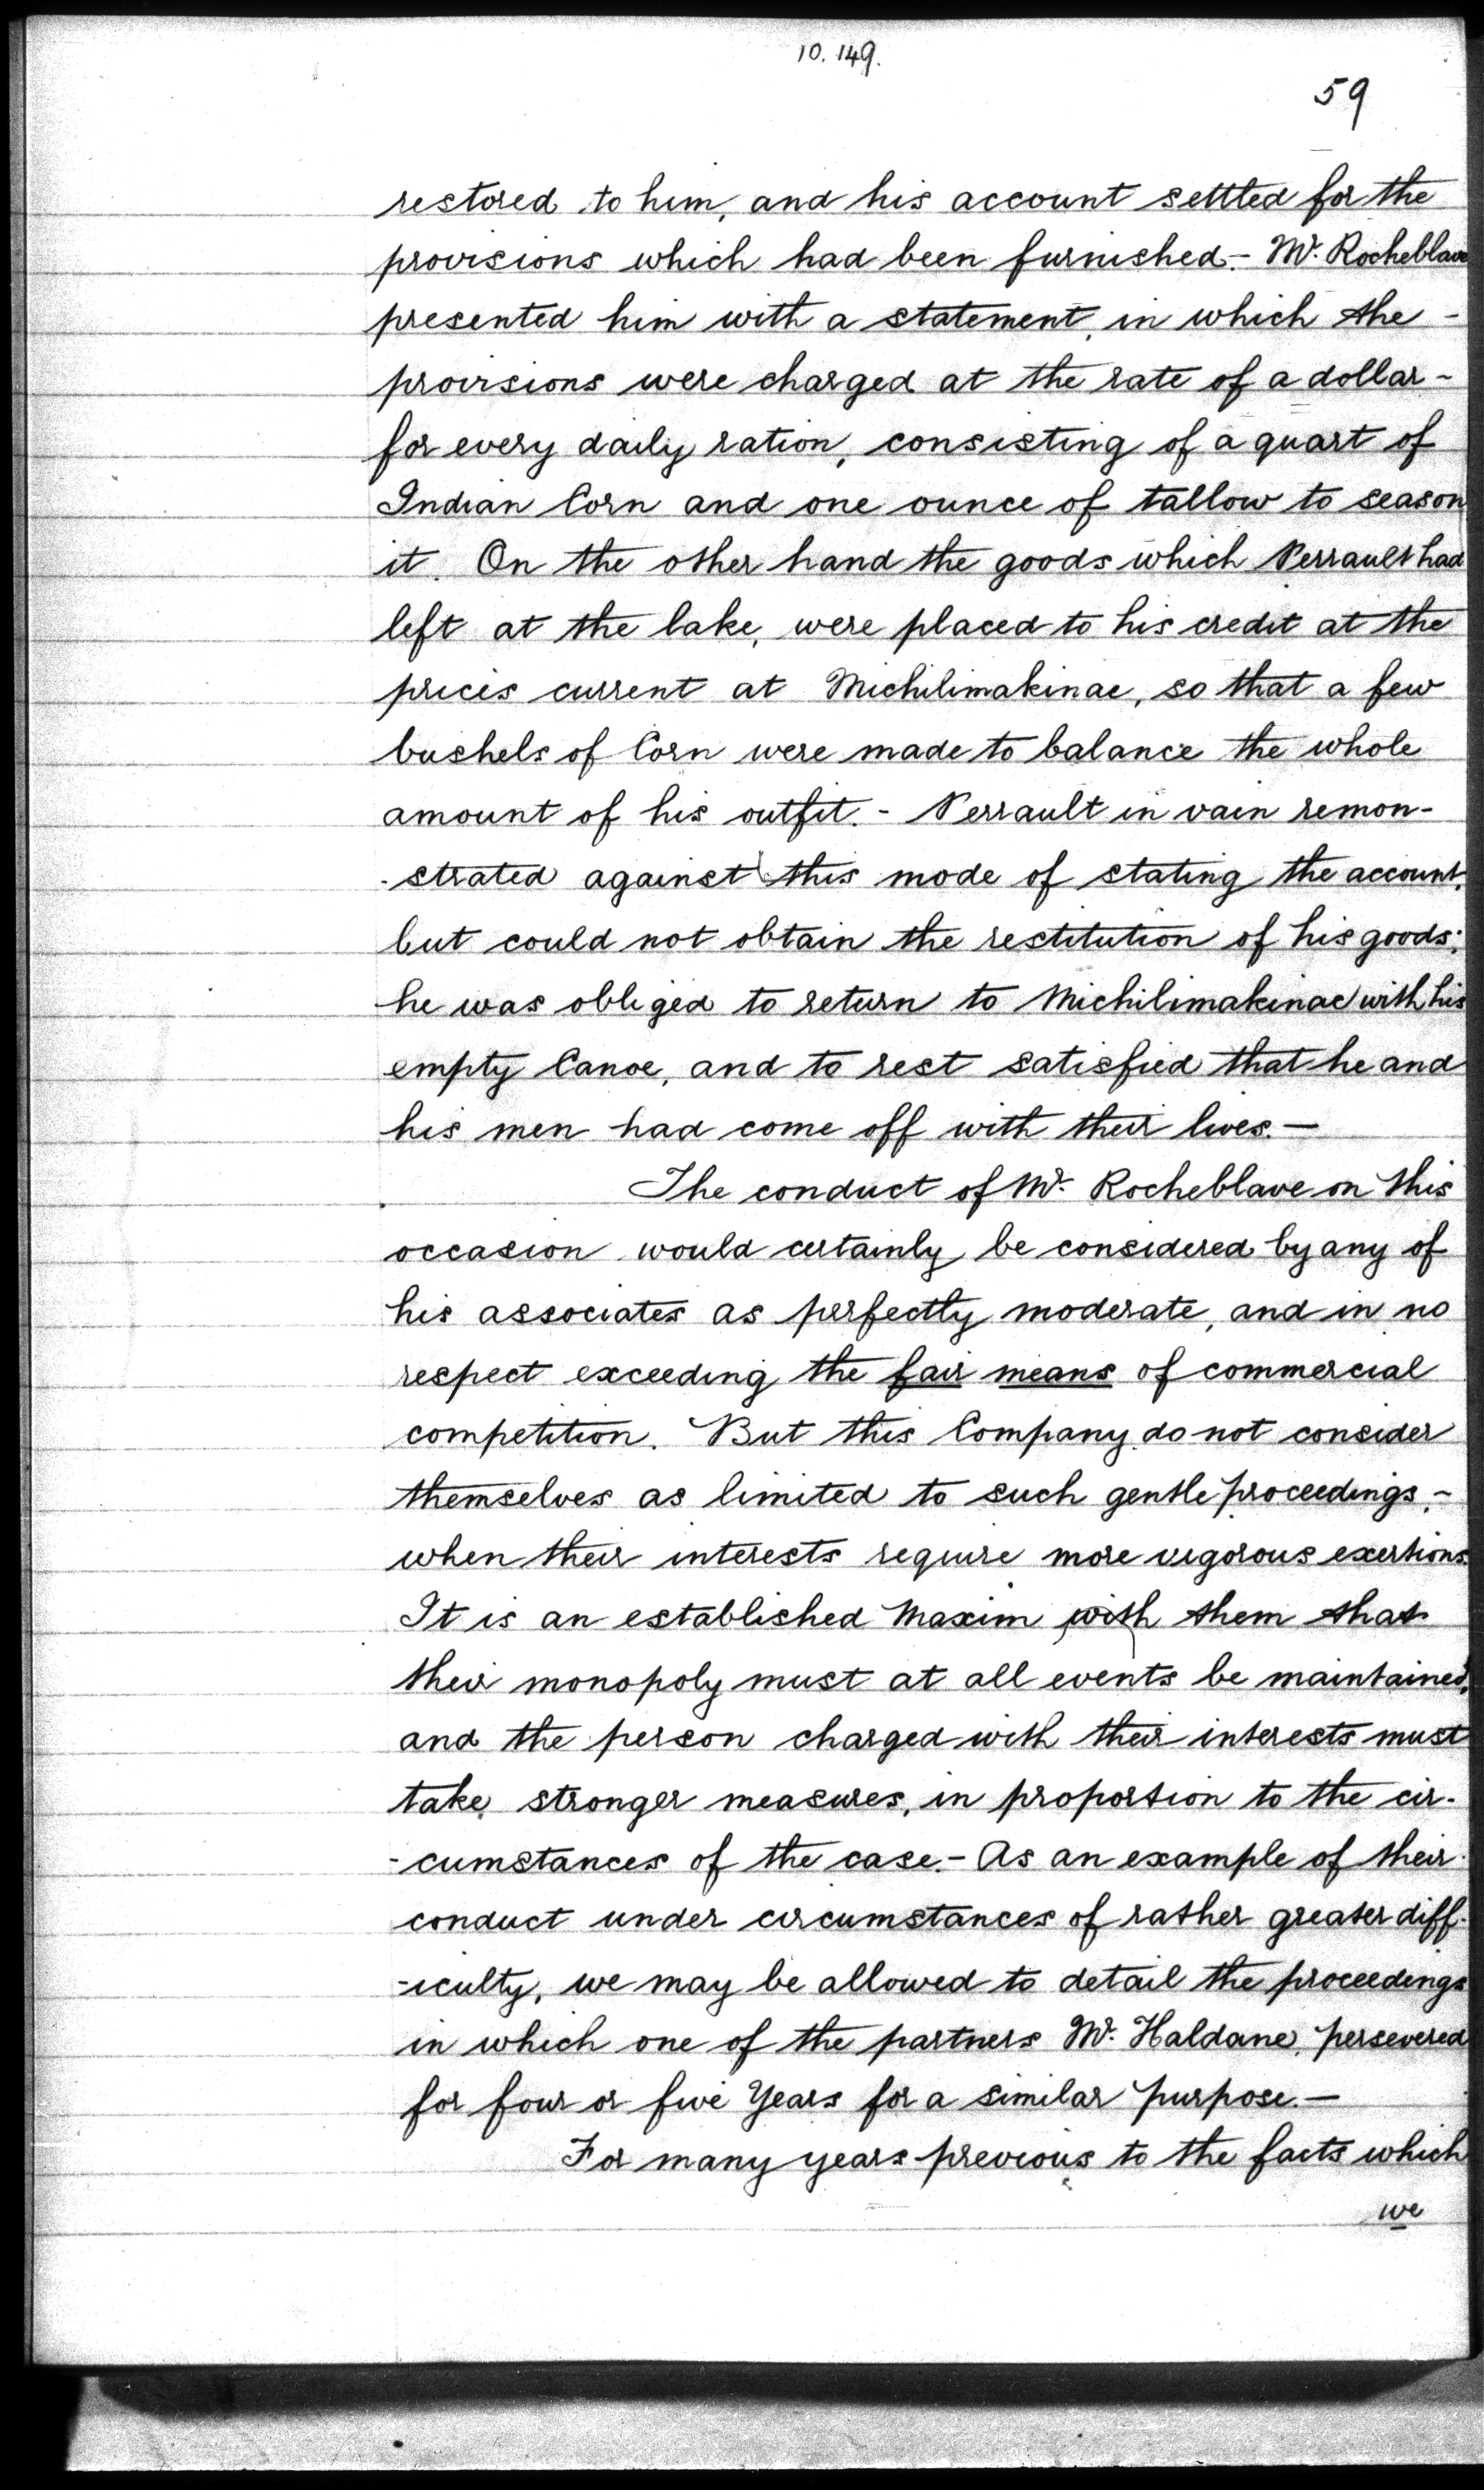 10.149.
59
restored to him, and his account settled for the
provisions which had been furnished.- Mr. Rocheblave
presented him with a statement, in which the -
provisions were charged at the rate of a dollar -
for every daily ration, consisting of a quart of
Indian Corn and one ounce of tallow to season
it. On the other hand the goods which Perrault had
left at the lake, were placed to his credit at the
prices current at Michilimakinac, so that a few
bushels of Corn were made to balance the whole
amount of his outfit. - Perrault in vain remon-
-strated against this mode of stating the account,
but could not obtain the restitution of his goods;
he was obliged to return to Michilimakinac with his
empty Canoe, and to rest satisfied that he and
his men had come off with their lives.-
The conduct of Mr. Rocheblave on this
occasion would certainly be considered by any of
his associates as perfectly moderate, and in no
respect exceeding the fair means of commercial
competition. But this Company do not consider
themselves as limited to such gentle proceedings,-
when their interests require more vigorous exertions.
It is an established Maxim with them that
their monopoly must at all events be maintained,
and the person charged with their interests must
take stronger measures, in proportion to the cir-
-cumstances of the case.- As an example of their
conduct under circumstances of rather greater diff-
-iculty, we may be allowed to detail the proceedings
in which one of the partners Mr. Haldane, persevered
for four or five Years for a similar purpose.-
For many years previous to the facts which
we